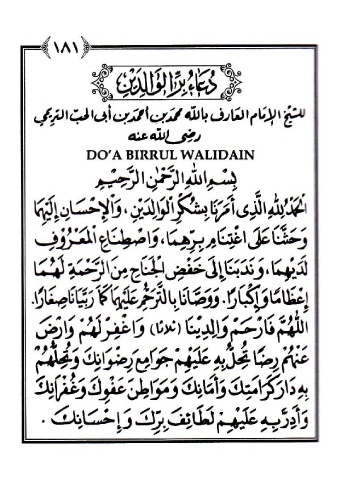 ١٨١
دُعَاءُ بِرِّ الْوَالِدَيْنِ
للشيخ الإمام العارف بالله محمد بن أحمد بن أبى الحب التريمي
رضى الله عنه
DO'A BIRRUL WALIDAIN
بِسْمِ اللهِ الرَّحْمٰنِ الرَّحِيْمِ
اَلْحَمْدُ لِلّٰهِ الَّذِى أَمَرَنَا بِشُكْرِ الْوَالِدَيْنِ، وَالْإِحْسَانِ إِلَيْهِمَا
وَحَثَّنَا عَلَى اغْتِنَامِ بِرِّهِمَا، وَاصْطِنَاعِ الْمَعْرُوْفِ
لَدَيْهِمَا، وَنَدَبَنَا إِلَى خَفْضِ الْجَنَاحِ مِنَ الرَّحْمَةِ لَهُمَا
إِعْظَامًا وَإِكْبَارًا. وَوَصَّانَا بِالتَّرَحُّمِ عَلَيْهِمَا كَمَا رَبَّيَانَا صِغَارًا.
اَللّٰهُمَّ فَارْحَمْ وَالِدِيْنَا (ثلاثا) وَاغْفِرْ لَهُمْ وَارْضَ
عَنْهُمْ رِضًا تُحِلُّ بِهِ عَلَيْهِمْ جَوَامِعَ رِضْوَانِكَ وَتُحِلُّهُمْ
بِهِ دَارَ كَرَامَتِكَ وَأَمَانِكَ وَمَوَاطِنَ عَفْوِكَ وَغُفْرَانِكَ
وَأَدِرَّ بِهِ عَلَيْهِمْ لَطَائِفَ بِرِّكَ وَإِحْسَانِكَ.